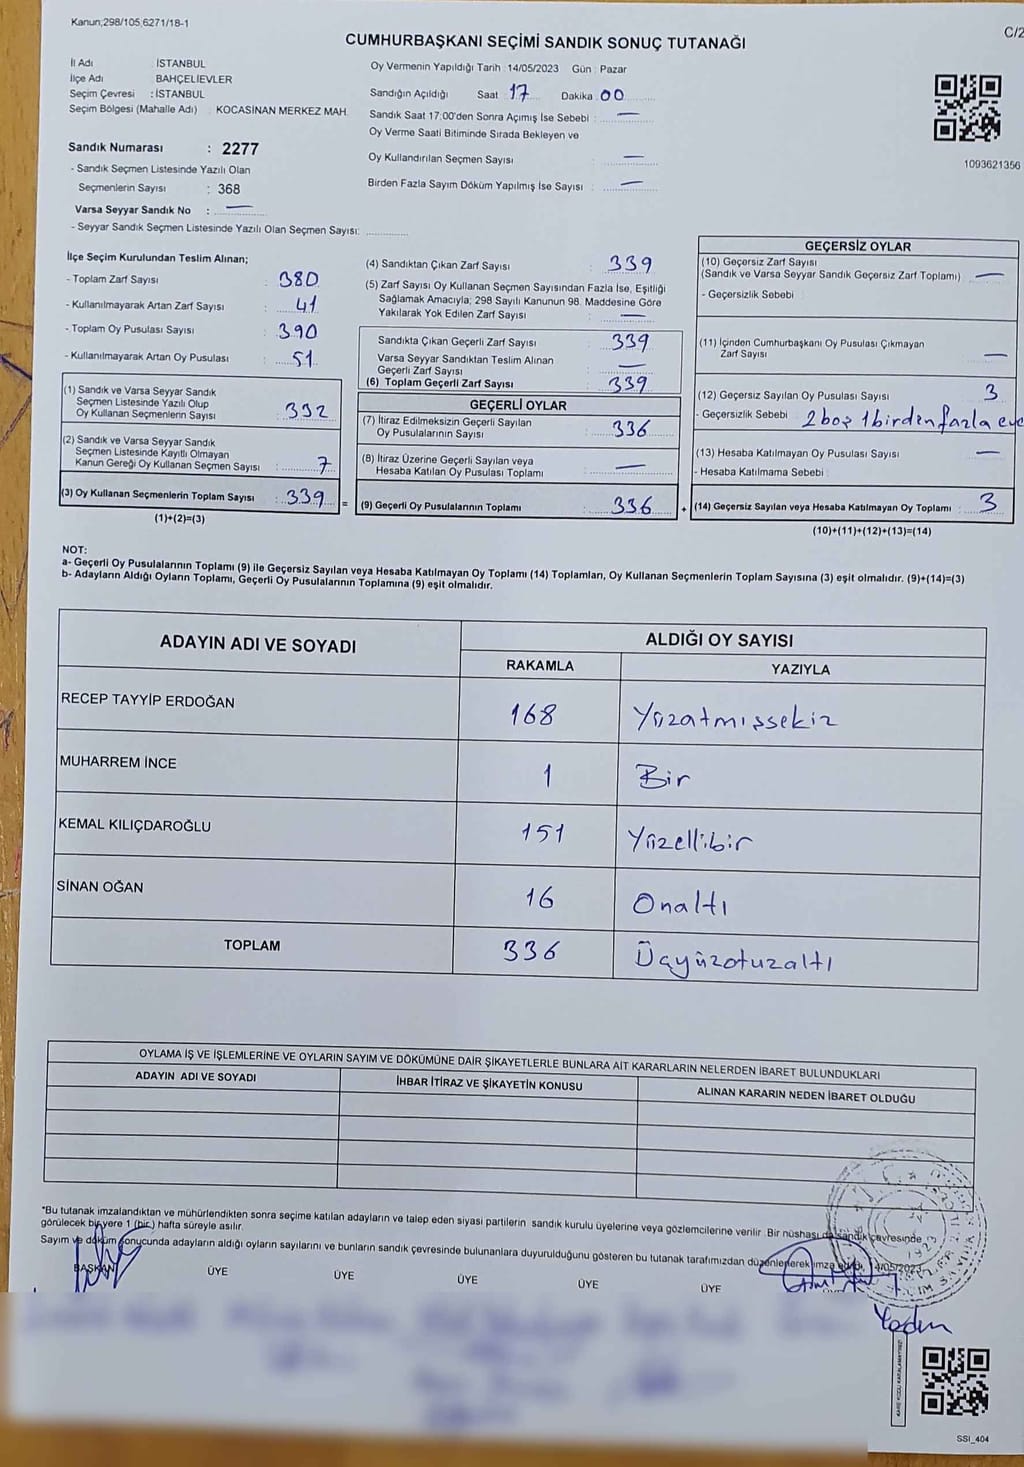 Kanun;298/105,6271/18-1
C/2
CUMHURBAŞKANI SEÇİMİ SANDIK SONUÇ TUTANAĞI
İl Adı : İSTANBUL
İlçe Adı : BAHÇELİEVLER
Seçim Çevresi : İSTANBUL
Seçim Bölgesi (Mahalle Adı) : KOCASİNAN MERKEZ MAH.
Oy Vermenin Yapıldığı Tarih :14/05/2023 Gün : Pazar
Sandığın Açıldığı Saat 17 Dakika 00
Sandık Saat 17:00'den Sonra Açımış İse Sebebi : —
Oy Verme Saati Bitiminde Sırada Bekleyen ve
Oy Kullandırılan Seçmen Sayısı : —
Birden Fazla Sayım Döküm Yapılmış İse Sayısı : —
1093621356
Sandık Numarası : 2277
- Sandık Seçmen Listesinde Yazılı Olan
Seçmenlerin Sayısı : 368
Varsa Seyyar Sandık No : —
- Seyyar Sandık Seçmen Listesinde Yazılı Olan Seçmen Sayısı:
İlçe Seçim Kurulundan Teslim Alınan;
- Toplam Zarf Sayısı : 380
- Kullanılmayarak Artan Zarf Sayısı : 41
- Toplam Oy Pusulası Sayısı : 390
- Kullanılmayarak Artan Oy Pusulası : 51
(1) Sandık ve Varsa Seyyar Sandık
Seçmen Listesinde Yazılı Olup
Oy Kullanan Seçmenlerin Sayısı : 332
(2) Sandık ve Varsa Seyyar Sandık
Seçmen Listesinde Kayıtlı Olmayan
Kanun Gereği Oy Kullanan Seçmen Sayısı : 7
(3) Oy Kullanan Seçmenlerin Toplam Sayısı : 339 =
(1)+(2)=(3)
(4) Sandıktan Çıkan Zarf Sayısı : 339
(5) Zarf Sayısı Oy Kullanan Seçmen Sayısından Fazla İse, Eşitliği
Sağlamak Amacıyla; 298 Sayılı Kanunun 98. Maddesine Göre
Yakılarak Yok Edilen Zarf Sayısı : —
Sandıkta Çıkan Geçerli Zarf Sayısı : 339
Varsa Seyyar Sandıktan Teslim Alınan
Geçerli Zarf Sayısı : —
(6) Toplam Geçerli Zarf Sayısı : 339
GEÇERLİ OYLAR
(7) İtiraz Edilmeksizin Geçerli Sayılan
Oy Pusulalarının Sayısı : 336
(8) İtiraz Üzerine Geçerli Sayılan veya
Hesaba Katılan Oy Pusulası Toplamı : —
(9) Geçerli Oy Pusulalarının Toplamı : 336 +
GEÇERSİZ OYLAR
(10) Geçersiz Zarf Sayısı
(Sandık ve Varsa Seyyar Sandık Geçersiz Zarf Toplamı) —
- Geçersizlik Sebebi :
(11) İçinden Cumhurbaşkanı Oy Pusulası Çıkmayan
Zarf Sayısı —
(12) Geçersiz Sayılan Oy Pusulası Sayısı : 3
- Geçersizlik Sebebi : 2 boş 1 birden fazla eve
(13) Hesaba Katılmayan Oy Pusulası Sayısı : —
- Hesaba Katılmama Sebebi :
(14) Geçersiz Sayılan veya Hesaba Katılmayan Oy Toplamı : 3
(10)+(11)+(12)+(13)=(14)
NOT:
a- Geçerli Oy Pusulalarının Toplamı (9) ile Geçersiz Sayılan veya Hesaba Katılmayan Oy Toplamı (14) Toplamları, Oy Kullanan Seçmenlerin Toplam Sayısına (3) eşit olmalıdır. (9)+(14)=(3)
b- Adayların Aldığı Oyların Toplamı, Geçerli Oy Pusulalarının Toplamına (9) eşit olmalıdır.
ADAYIN ADI VE SOYADI
ALDIĞI OY SAYISI
RAKAMLA YAZIYLA
RECEP TAYYİP ERDOĞAN 168 Yüzatmışsekiz
MUHARREM İNCE 1 Bir
KEMAL KILIÇDAROĞLU 151 Yüzellibir
SİNAN OĞAN 16 Onaltı
TOPLAM 336 Üçyüzotuzaltı
OYLAMA İŞ VE İŞLEMLERİNE VE OYLARIN SAYIM VE DÖKÜMÜNE DAİR ŞİKAYETLERLE BUNLARA AİT KARARLARIN NELERDEN İBARET BULUNDUKLARI
ADAYIN ADI VE SOYADI İHBAR İTİRAZ VE ŞİKAYETİN KONUSU ALINAN KARARIN NEDEN İBARET OLDUĞU
*Bu tutanak imzalandıktan ve mühürlendikten sonra seçime katılan adayların ve talep eden siyasi partilerin sandık kurulu üyelerine veya gözlemcilerine verilir. Bir nüshası da sandık çevresinde
görülecek bir yere 1 (bir) hafta süreyle asılır.
Sayım ve döküm sonucunda adayların aldığı oyların sayılarını ve bunların sandık çevresinde bulunanlara duyurulduğunu gösteren bu tutanak tarafımızdan düzenlenerek imza edildi. 14/05/2023
BAŞKAN ÜYE ÜYE ÜYE ÜYE ÜYE
1923
KARE KODU KARALAMAYINIZ!
SSI_404